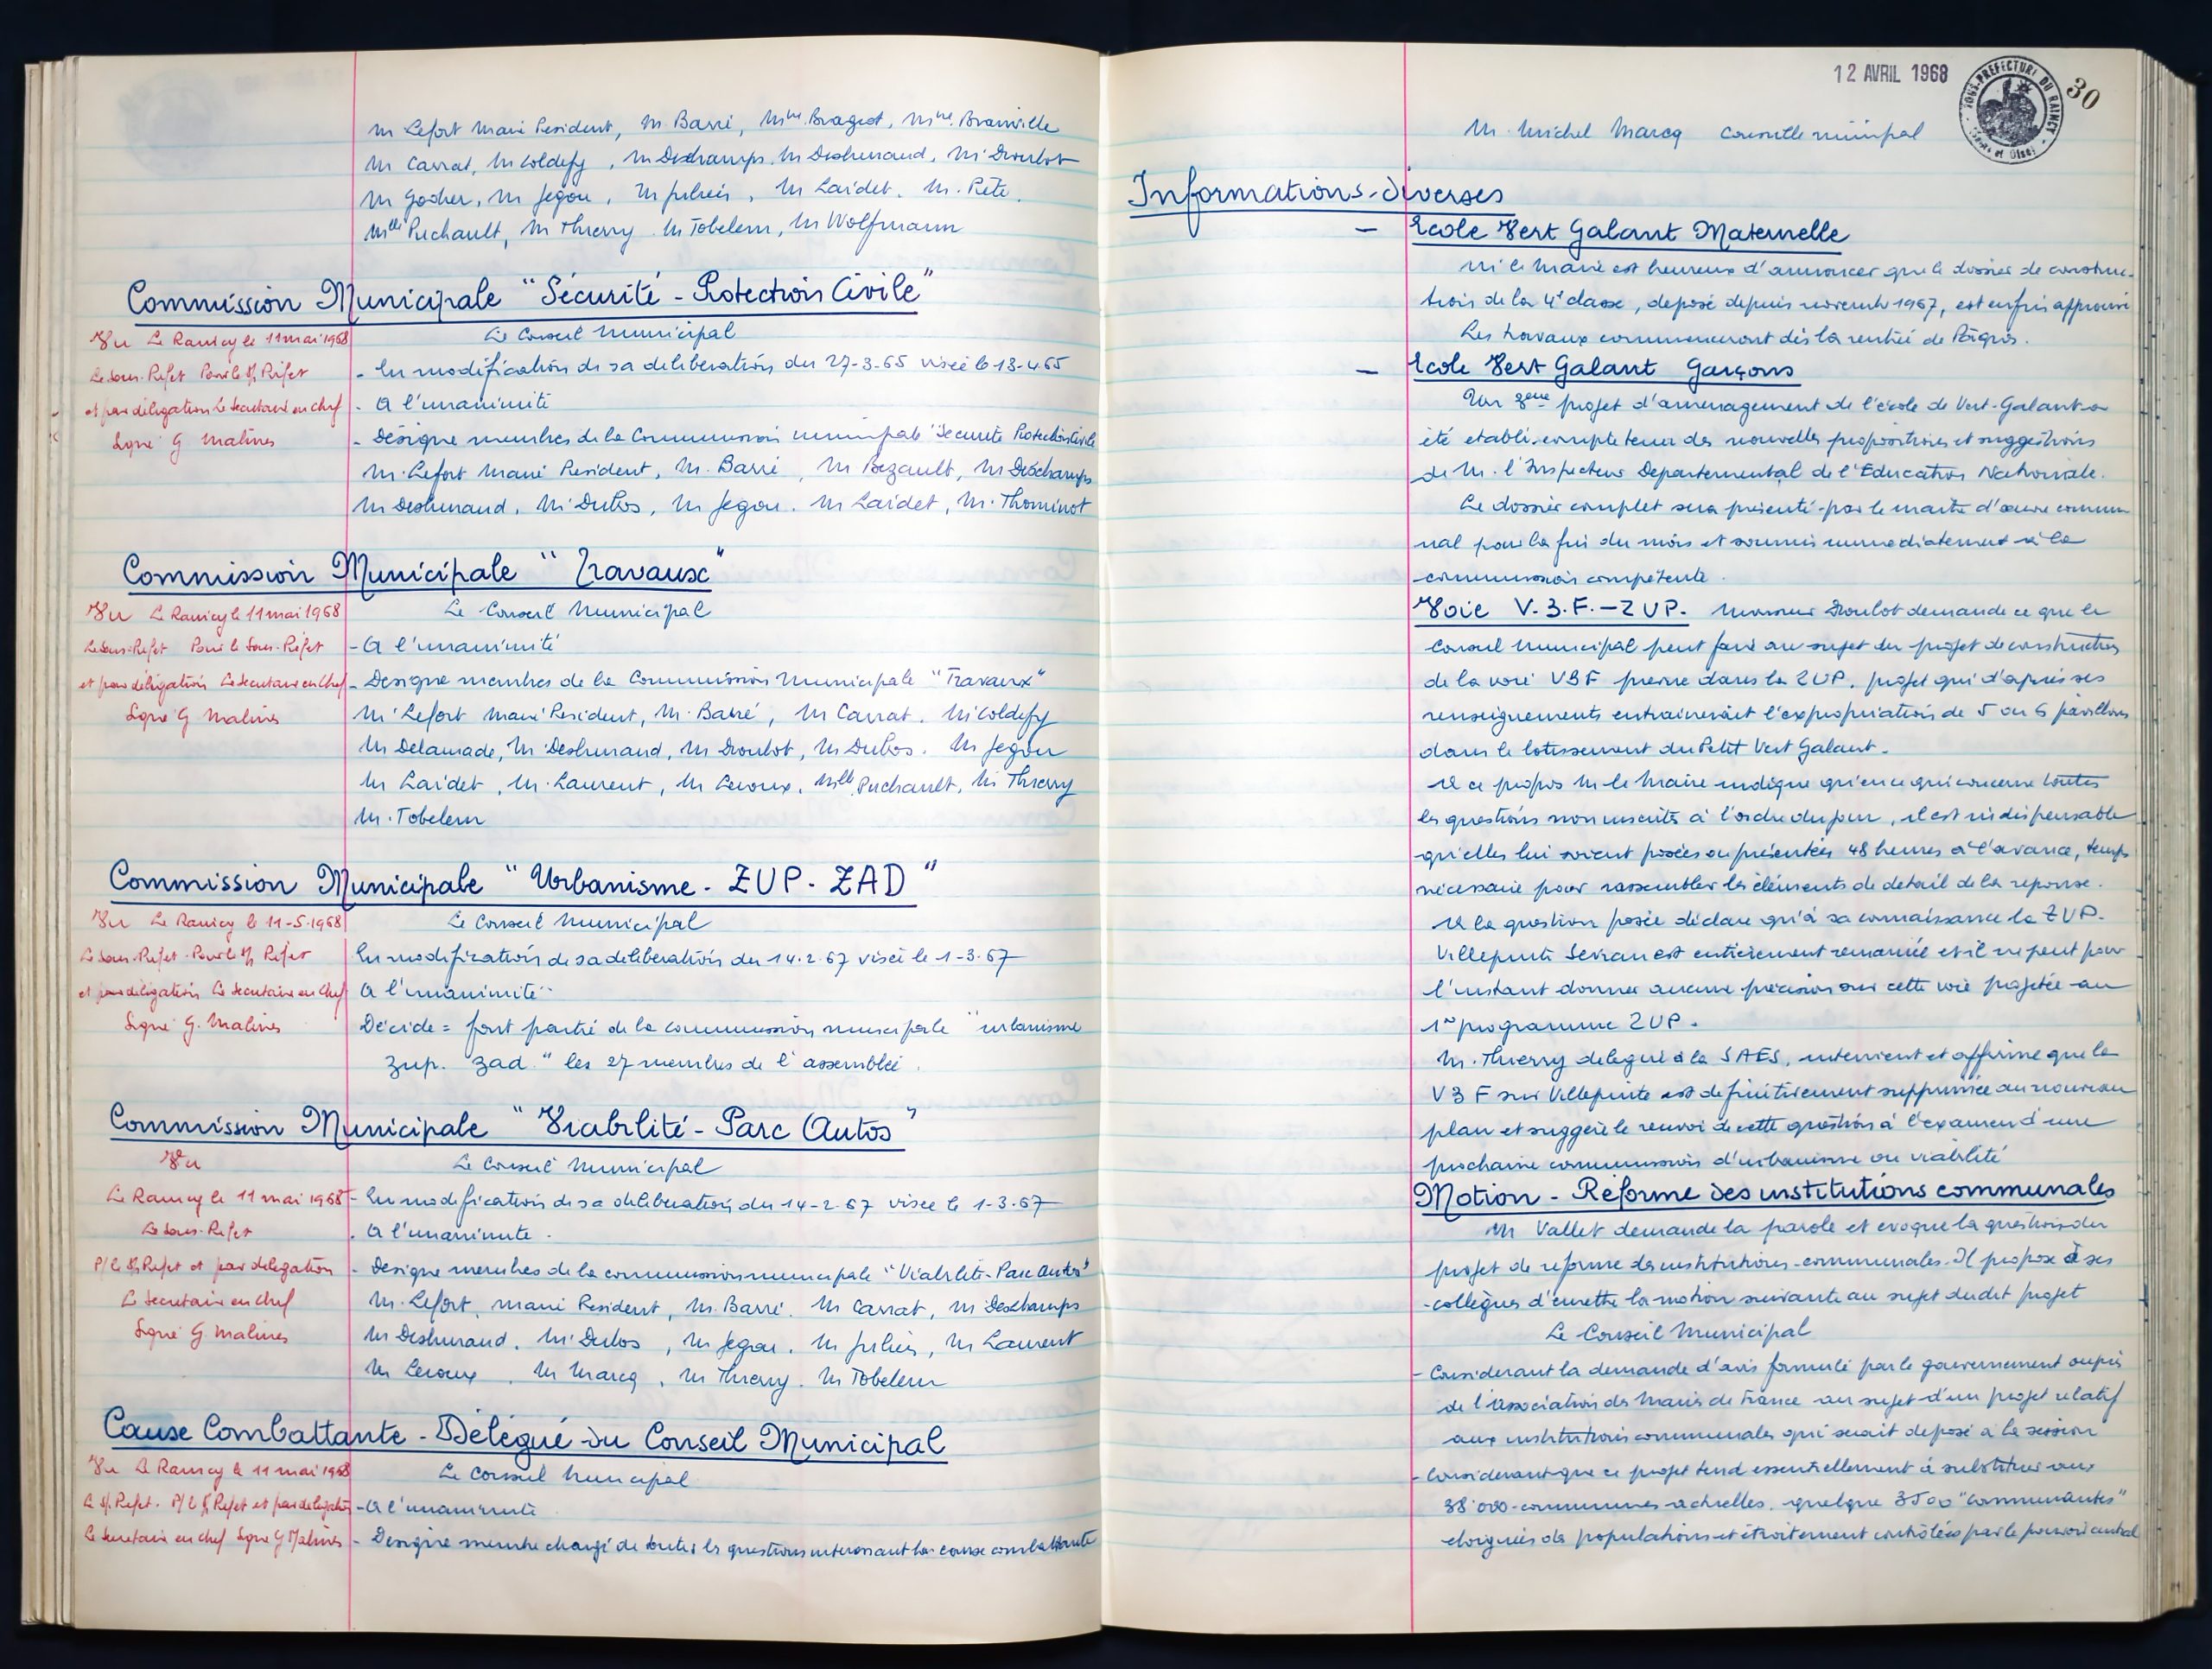 M Lefort Maire Président, M Barré, Mme Brageot, Mme Brainville
M Carrat, M Coldefy, M Deschamps, M Deshuraud, M Droulot
M Godier, M Jegou, M Julien, M Laidet, M. Pète.
Mlle Puchault, M Thierry. M Tobelem, M Wolfmann
Commission Municipale "Sécurité - Protection Civile"
Vu Le Raincy le 11 mai 1968
Le Conseil Municipal
Le Sous-Préfet Pour le S/ Préfet
- En modification de sa déliberation du 27-3-65 visée le 13-4-65
et par délégation Le Secretaire en chef
- A l'unanimité
Signé G Malines
- Désigne membres de la Commission municipale "Securité Protection Civile
M. Lefort Maire Président, M. Barré, M Bezault, M Deschamps
M Deshuraud, M Dubos, M Jegou. M Laidet, M. Thominot
Commission Municipale "Travaux"
Vu Le Raincy le 11 mai 1968
Le Conseil Municipal
Le Sous-Préfet Pour le Sous-Préfet
- A l'unanimité
et par délégation Le Secretaire en Chef
- Designe membres de la Commission Municipale "Travaux"
Signé G Malines
M Lefort Maire Président, M. Barré, M Carrat. M Coldefy
M Delamade, M Deshuraud, M Droulot, M Dubos. M Jegou
M Laidet, M. Laurent, M Leroux, Mlle Puchault, M Thierry
M. Tobelem
Commission Municipale "Urbanisme - ZUP - ZAD"
Vu Le Raincy le 11-5-1968
Le Conseil Municipal
Le Sous-Préfet - Pour le S/ Préfet
En modification de sa déliberation du 14.2.67 visée le 1-3-67
et par délégation Le Secretaire en Chef
A l'unanimité
Signé G. Malines
Décide = font partie de la commission municipale "urbanisme
zup. zad." les 27 membres de l'assemblée.
Commission Municipale "Viabilité - Parc Autos"
Vu
Le Conseil Municipal
Le Raincy le 11 mai 1968
- En modification de sa déliberation du 14-2-67 visée le 1-3-67
Le Sous-Préfet
. A l'unanimité.
P/ le S/ Préfet et par delegation
- Designe membres de la commission municipale "Viabilité - Parc Autos"
Le Secretaire en chef
M. Lefort, Maire Président, M. Barré. M Carrat, M Deschamps
Signé G Malines
M Deshuraud, M Dubos, M Jegou. M Julien, M Laurent
M Leroux, M Marcq, M Thierry. M Tobelem
Cause Combattante - Délégué du Conseil Municipal
Vu Le Raincy le 11 mai 1968
Le Conseil Municipal
Le S/ Préfet. P/ le S/ Préfet et par délégation
- A l'unanimité
Le Secretaire en chef Signé G Malines
- Designe membre chargé de toutes les questions interessant la cause combattante
12 AVRIL 1968
SOUS-PREFECTURE DU RAINCY
30
M. Michel Marcq conseiller municipal
Informations diverses
- Ecole Vert Galant Maternelle
M le Maire est heureux d'annoncer que le dossier de construc-
tion de la 4e classe, déposé depuis novembre 1967, est enfin approuvé
Les travaux commenceront dès la rentrée de Pâques.
- Ecole Vert Galant Garçons
Un 3eme projet d'aménagement de l'école de Vert-Galant a
été établi compte tenu des nouvelles propositions et suggestions
de M. l'Inspecteur Départemental de l'Education Nationale.
Le dossier complet sera présenté par le maitre d'œuvre commu-
nal pour la fin du mois et soumis immédiatement à la
commission compétente.
Voie V.3.F. - ZUP. Monsieur Droulot demande ce que le
Conseil Municipal peut faire au sujet du projet de construction
de la voie V3F prévue dans la ZUP, projet qui d'après ses
renseignements entrainerait l'expropriation de 5 ou 6 pavillons
dans le lotissement du Petit Vert Galant.
A ce propos M le Maire indique qu'en ce qui concerne toutes
les questions non inscrites à l'ordre du jour, il est indispensable
qu'elles lui soient posées ou présentées 48 heures à l'avance, temps
nécessaire pour rassembler les éléments de détail de la réponse.
A la question posée déclare qu'à sa connaissance la ZUP.
Villepinte Sevran est entièrement remaniée et il ne peut pour
l'instant donner aucune précision sur cette voie projetée au
1er programme ZUP.
M. Thierry délégué à la SAES, intervient et affirme que la
V3F sur Villepinte est définitivement supprimée au nouveau
plan et suggère le renvoi de cette question à l'examen d'une
prochaine commission d'urbanisme ou viabilité
Motion - Réforme des institutions communales
M Vallet demande la parole et evoque la question du
projet de reforme des institutions communales. Il propose à ses
collègues d'emettre la motion suivante au sujet dudit projet
Le Conseil Municipal
- Considerant la demande d'avis formulé par le gouvernement auprès
de l'Association des Maires de France au sujet d'un projet relatif
aux institutions communales qui serait deposé à la session
- Considerant que ce projet tend essentiellement à substituer aux
38 000 communes actuelles, quelque 3500 "communautés"
eloignées des populations et étroitement contrôlées par le pouvoir central